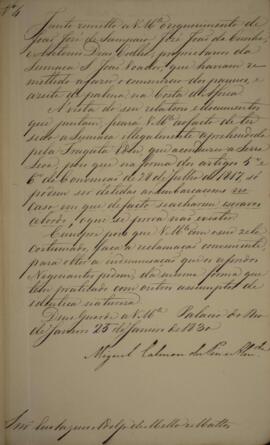 Nº 4
Junto remetto a V. Mce o requerimento de
João José de Sampaio, José João da Cunha,
e Antonio Dias Coelho, proprietarios da
Sumaca S. João Voador, que haviam re-
mettido a fazer o commercio dos pannos, e
azeite de palma na Costa de
A vista do seu relatorio e documentos
que juntam, prova V. Mce o facto de ter
sido a Sumaca illegalmente aprehendida
pela Fragata que a conduzio a Serra
Leoa, pois que na forma dos artigos 5º e
6º da Convenção de 28 de Julho de 1817, só
podem ser detidas as embarcaçoens no
caso em que de facto se acharem escravos
a bordo, o que se prova não existir.
Cumpre pois que V. Mce
continuado, faça a reclamação conveniente
para obter a indemnisação que os referidos
Negociantes pedem, da mesma forma que
tem praticado com outros assumptos de
identica natureza.
Deus Guarde a V. Mce Palacio do Rio
de Janeiro 25 de Janeiro de 1830
Miguel Calmon du Pin e Alm.
Snr. de Mello e Mattos